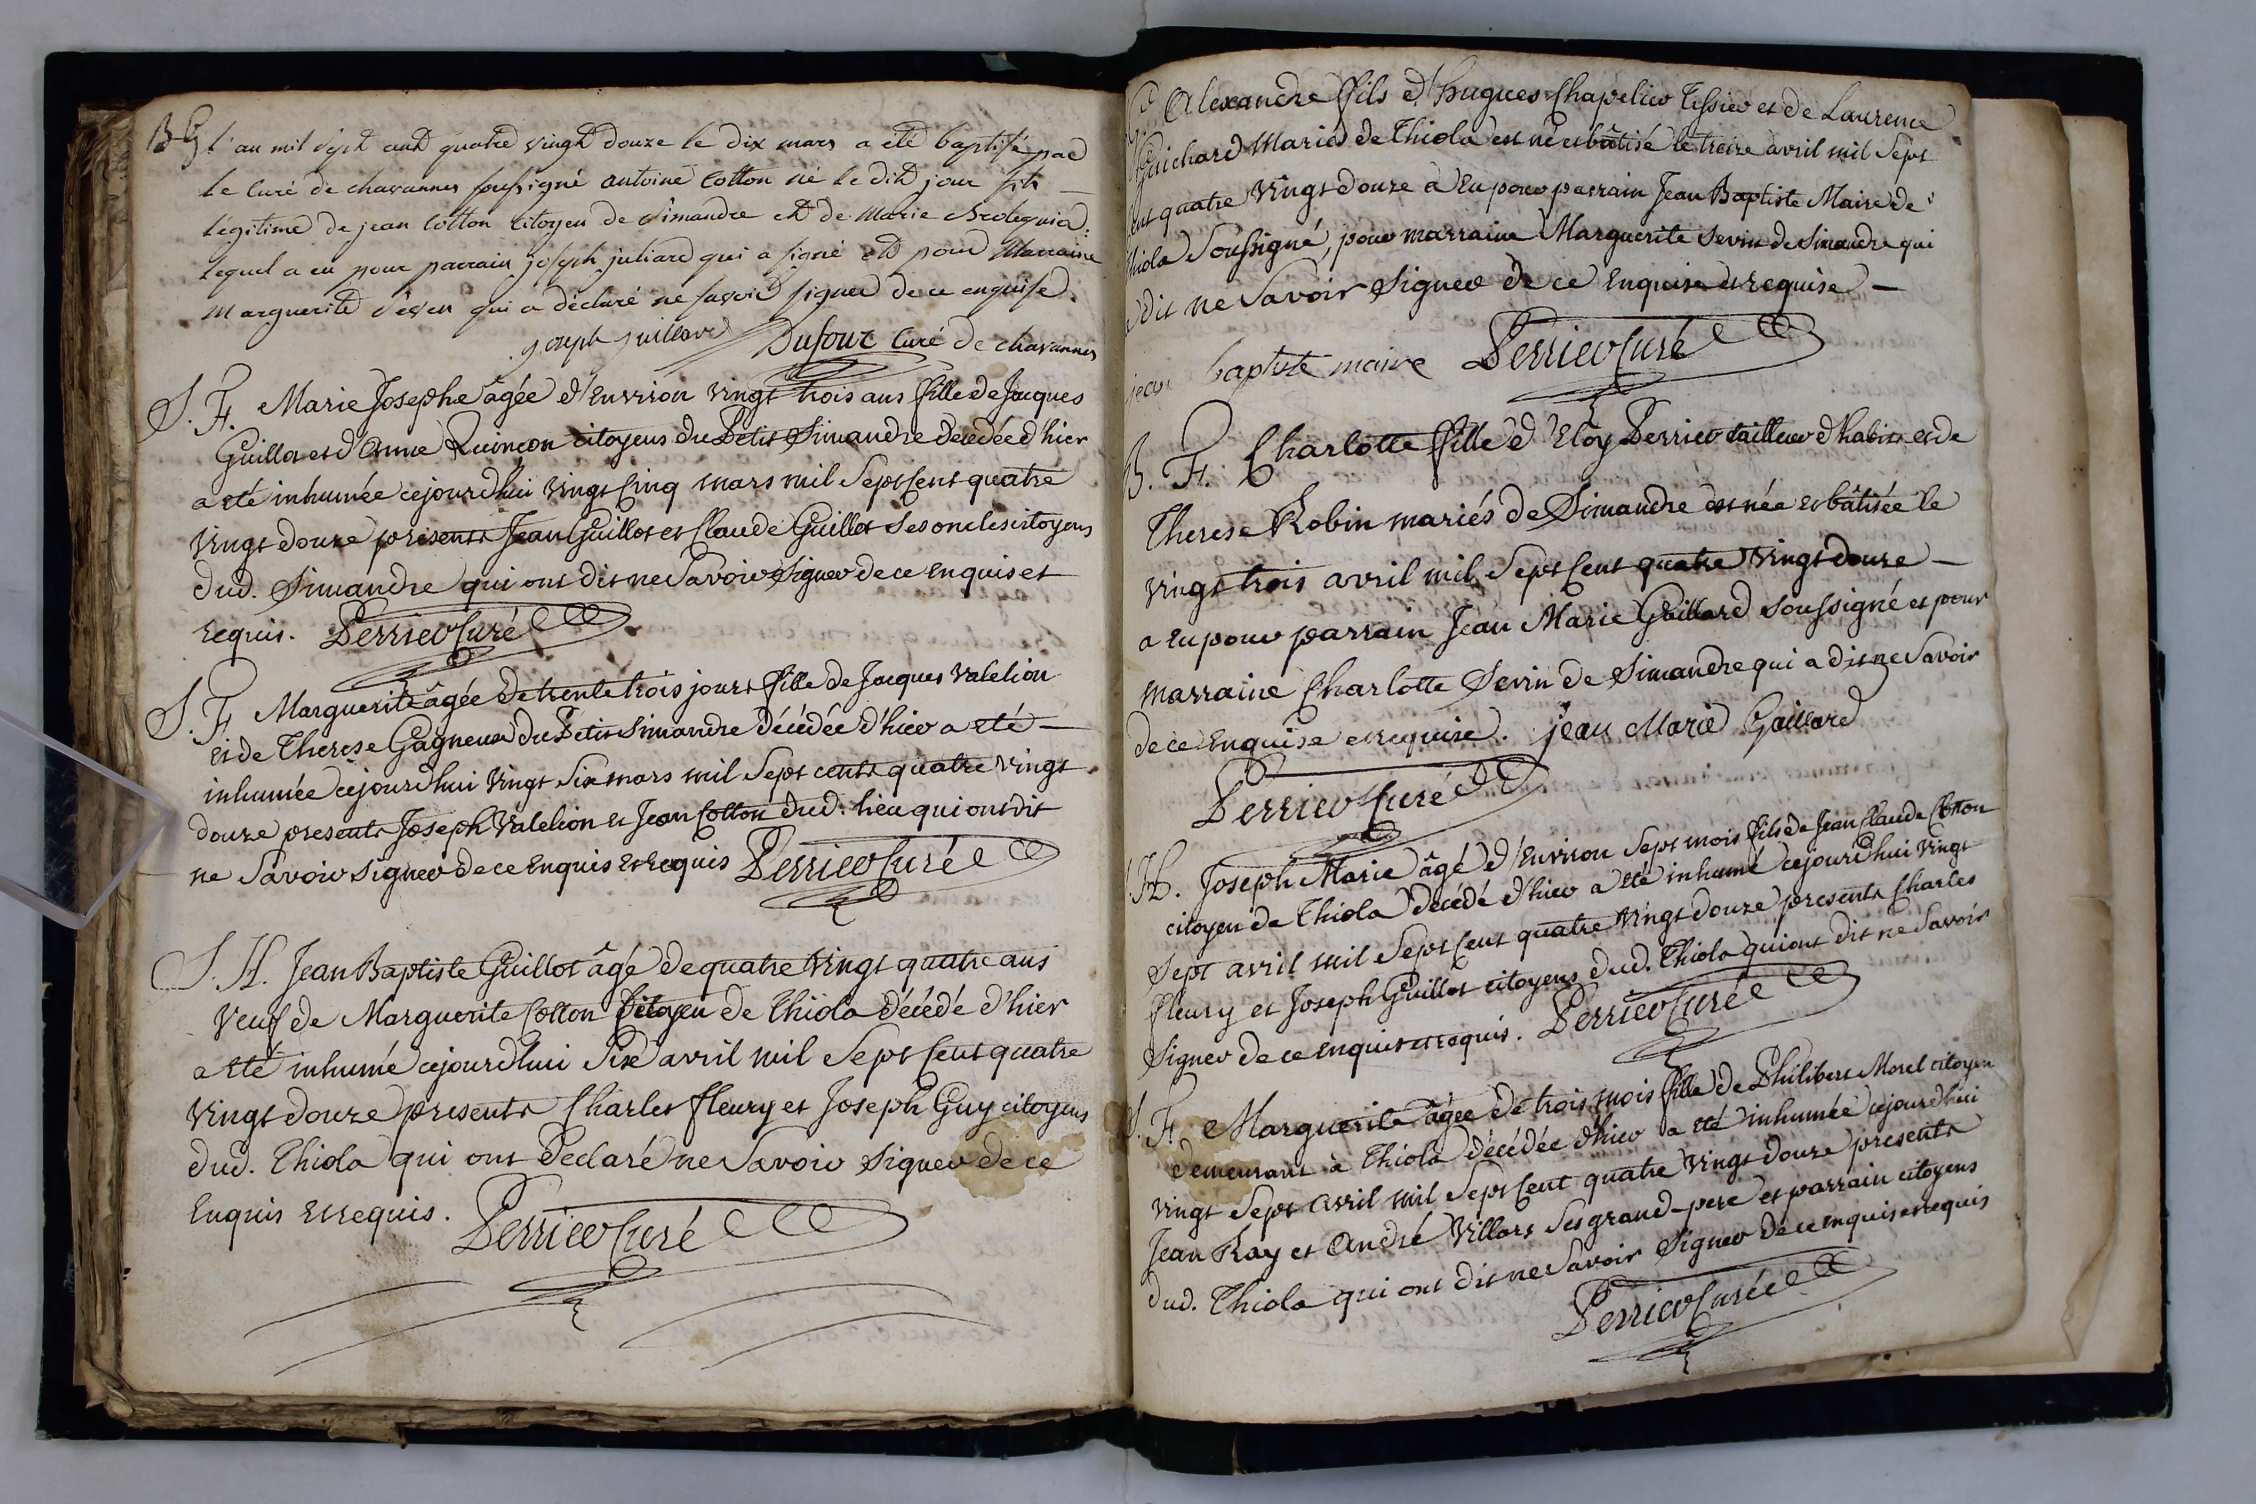 BG l'an mil sept cent quatre vingt douze le dix mars a été baptisé par
le Curé de chavannes soussigné antoine Cotton né le dit jour fils
légitime de jean Cotton Citoyen de Simandre et de Marie
lequel a eu pour parrain joseph juliard qui a signé et pour Marraine
Marguerite seven qui a déclaré ne savoir signer de ce enquise.
joseph juillard Dufour Curé de chavannes
S. F. Marie Josephe âgée d'Environ vingt trois ans fille de Jacques
Guillot et d'Anne Quinçon citoyens du Petit Simandre décédée d'hier
a été inhumée cejourdhui vingt Cinq mars mil Sept Cent quatre
vingt douze présents Jean Guillot et Claude Guillot Ses oncles citoyens
dud. Simandre qui ont dit ne Savoir Signer de ce Enquis et
requis. Perrier Curé
S. F. Marguerite âgée de trente trois jours fille de Jacques Valelion
et de Therese Gagneur du Petit Simandre décédée d'hier a été
inhumée cejourdhui vingt Six mars mil Sept cents quatre vingt
douze presents Joseph Valelion et Jean Cotton dud. lieu qui ont dit
ne Savoir Signer de ce Enquis et requis Perrier Curé
S. H. Jean Baptiste Guillot âgé de quatre vingt quatre ans
Veuf de Marguerite Cotton Citoyen de Thiola décédé d'hier
a été inhumé cejourdhui Six avril mil Sept Cent quatre
vingt douze presents Charles fleury et Joseph Guy citoyens
dud. Thiola qui ont déclaré ne Savoir Signer de ce
Enquis et requis. Perrier Curé
Alexandre fils d'hugues Chapelier Tissier et de Laurence
Guichard Mariés de Thiola est né et bâtisé le treize avril mil Sept
Cent quatre Vingt douze a Eu pour parrain Jean Baptiste Maire de
Thiola Soussigné, pour marraine Marguerite Sevin de Simandre qui
a dit ne Savoir Signer de ce Enquise et requise
jean baptiste maire Perrier Curé
B. F. Charlotte fille d'Eloy Perrier tailleur d'habits et de
Therese Robin mariés de Simandre est née et bâtisée le
vingt trois avril mil Sept Cent quatre vingt douze
a Eu pour parrain Jean Marie Gaillard Soussigné et pour
marraine Charlotte Sevin de Simandre qui a dit ne Savoir
de ce Enquise et requise. jean Marie Gaillard
Perrier Curé
S. H. Joseph Marie âgé d'Environ Sept mois fils de Jean Claude Cotton
citoyen de Thiola décédé d'hier a été inhumé cejourdhui vingt
Sept avril mil Sept Cent quatre vingt douze presents Charles
fleury et Joseph Guillot citoyens dud. Thiola qui ont dit ne Savoir
Signer de ce enquis et requis. Perrier Curé
S. F. Marguerite âgée de trois mois fille de Philibert Morel citoyen
demeurant à Thiola décédée d'hier a été inhumée cejourdhui
vingt Sept avril mil Sept Cent quatre vingt douze presents
Jean Ray et André Villars Ses grand-pere et parrain citoyens
dud. Thiola qui ont dit ne Savoir Signer de ce enquis et requis
Perrier Curé